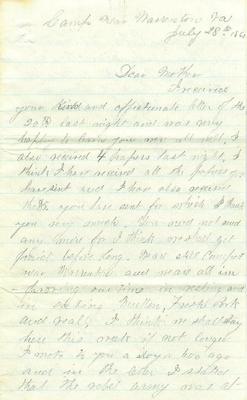 Camp Near Warrenton Va
July 28th 186
Dear Mother
I received
your kind and affectionate letter of the
20th last night and was very
happy to hear you were all well, I
also received 4 papers last night, I
think I have received all the papers you
have sent and I have also received
the you have sent for which I thank
you very much. You need not send
any more for I think we shall get
before long. We are still Camped
near Warrenton and are all in
our time in resting and
in eating Mutton, Fresh Pork
and veal, I think we shall stay
here this week if not longer
I wrote to you a day or two ago
and in the letter I stated
that the rebel army was at